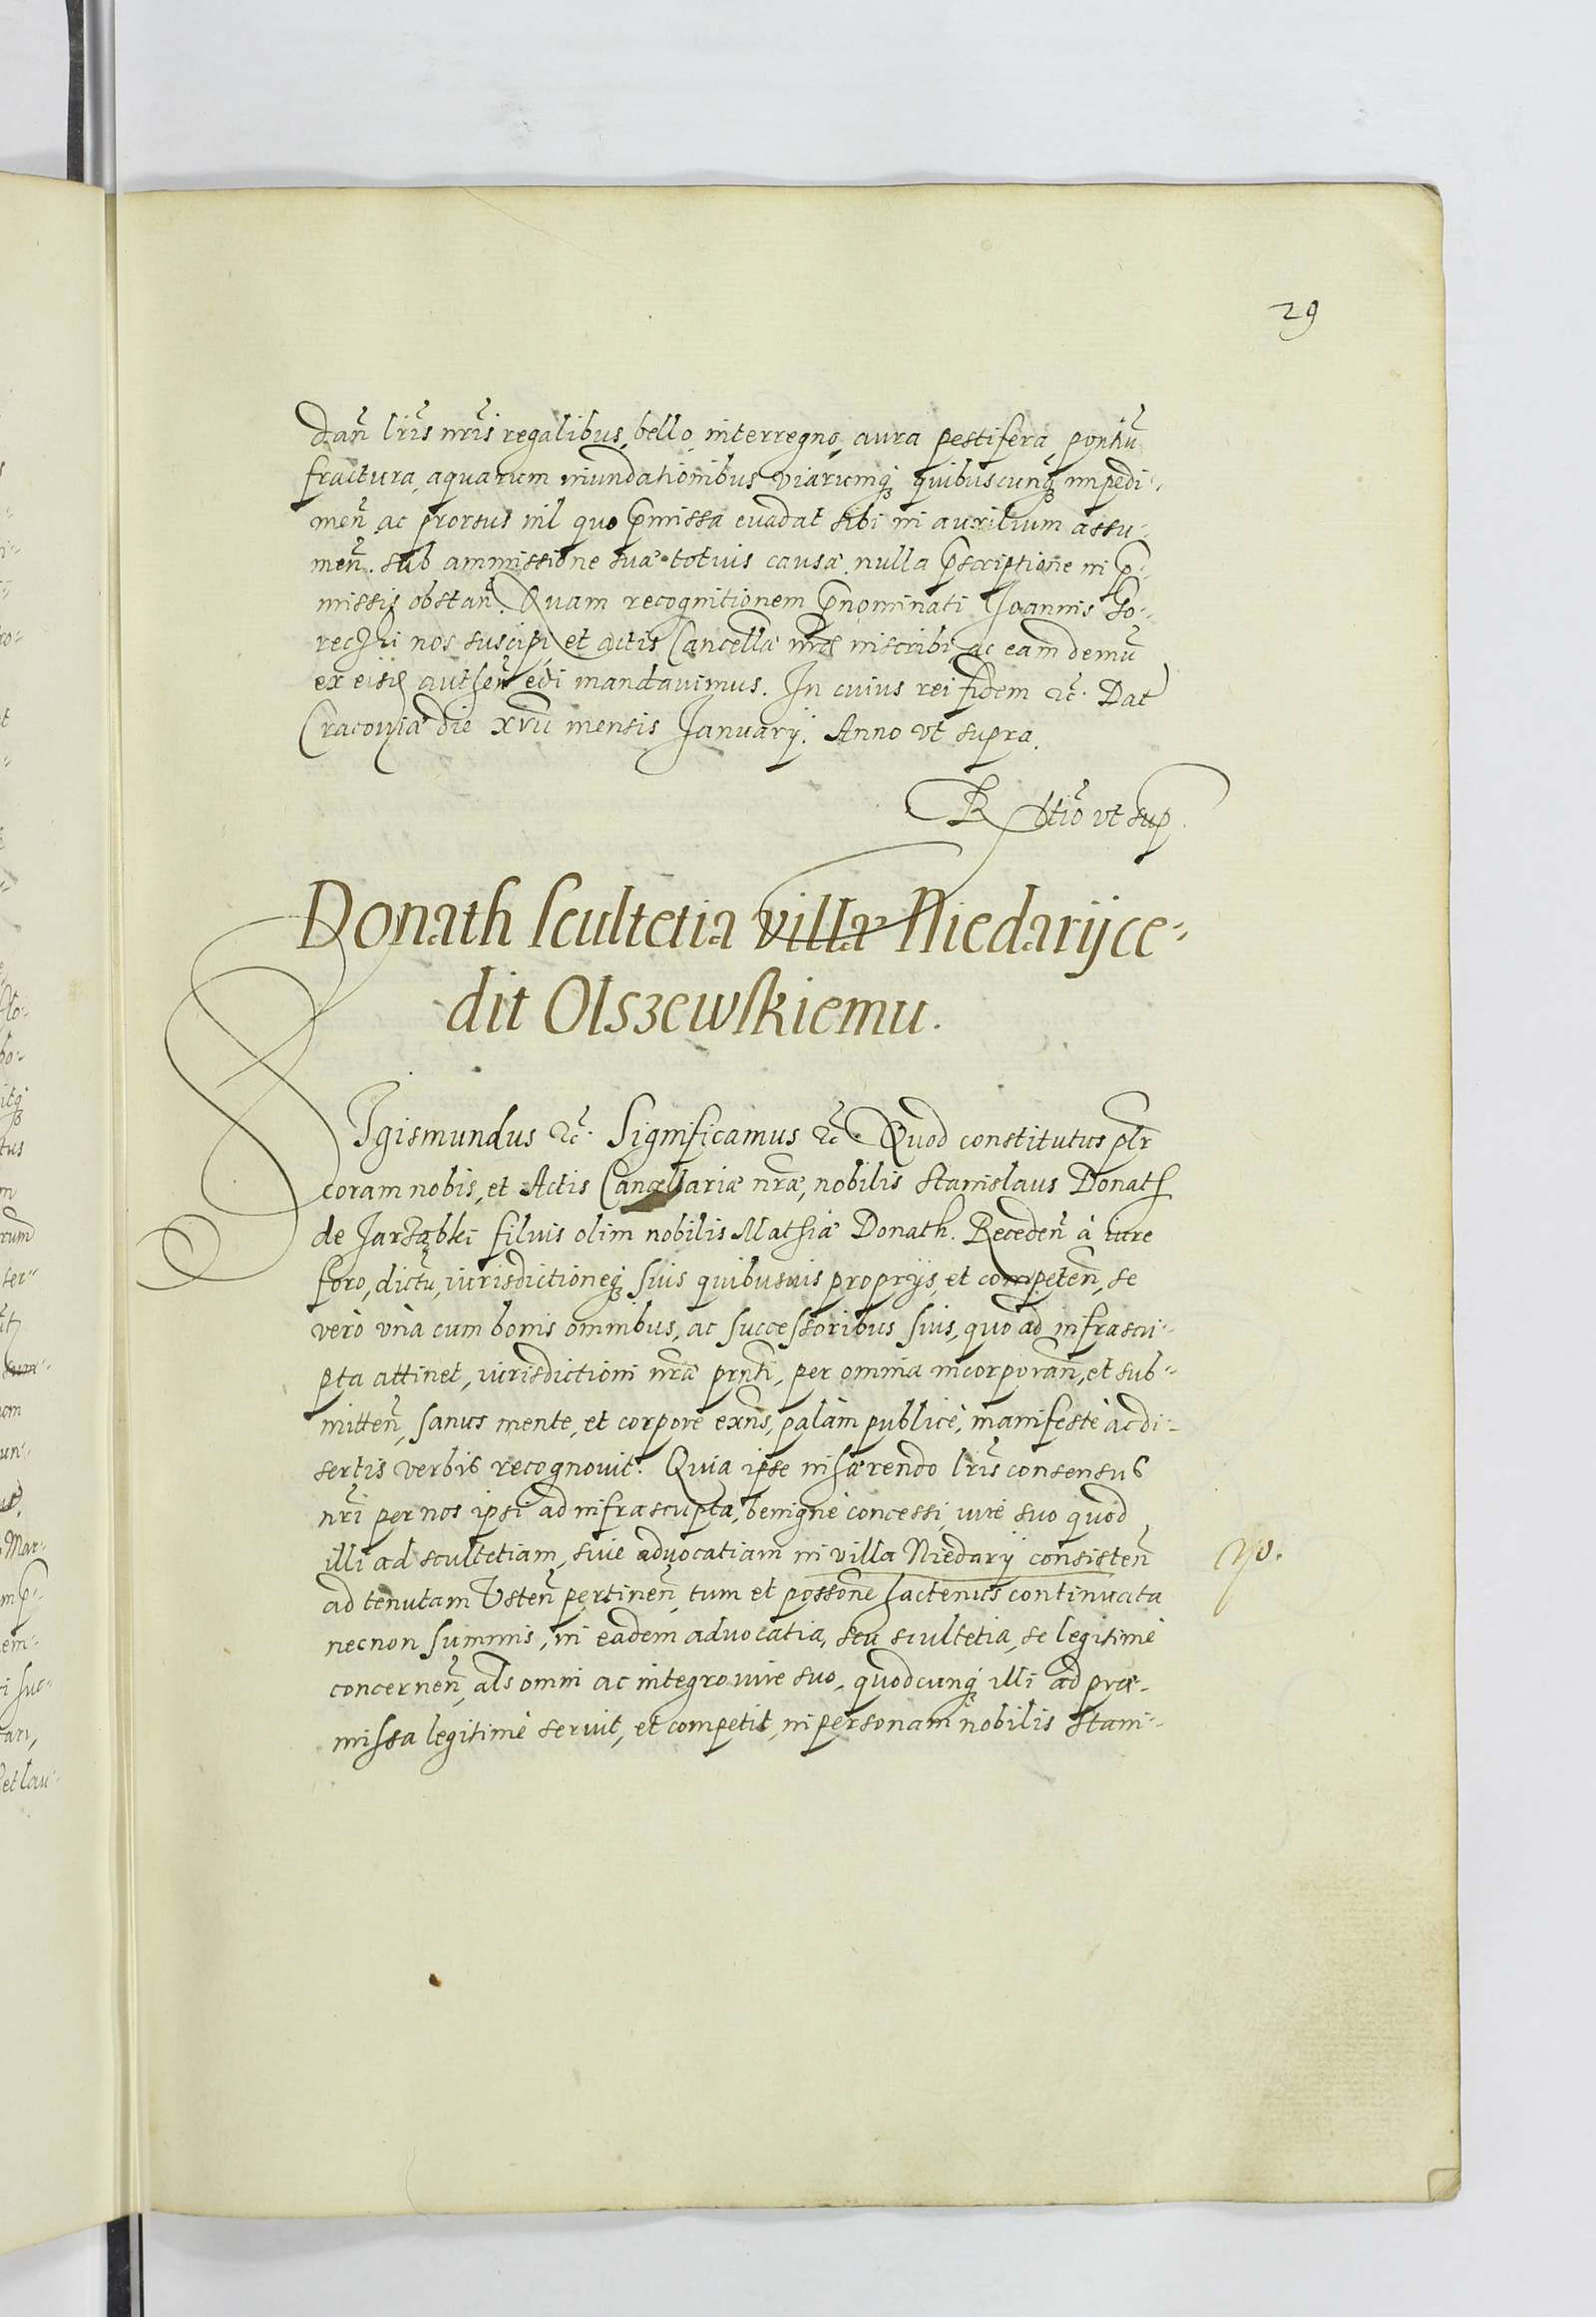 29
dañ lris nris regalibus, bello, interregno, aura pestifera, pontiũ
fractura, aquarum inundationibus viarumqꝫ quibuscunqꝫ impedi-
meñ ac prorsus nil quo p̃missa euadat sibi in auxilium assu-
meñ. sub ammissione suæ totius causæ. nulla p̃scriptione in p̃-
missis obstañ. Quam recognitionem p̃nominati Joannis Go-
rechi nos suscipi, et actis Cancellæ nræ inscribi, ac eam demũ
ex eisd autheñ edi mandauimus. In cuius rei fidem ꝛc̃. Dat
Cracouiæ die xvii mensis Januarij. Anno vt supra.
R̃ltio vt sup
Donath scultetia villæ Niedarij ce-
dit Olszewskiemu.
SIgismundus ꝛc̃. Significamus ꝛc̃. Quod constitutus plr̃
coram nobis, et Actis Cancellariæ nræ, nobilis Stanislaus Donath
de Jarząbki filius olim nobilis Mathiæ Donath. Recedeñ à iure
foro, dictũ, iurisdictioneqꝫ suis quibusuis proprijs, et competeñ, se
verò vnà cum bonis omnibus, ac successoribus suis, quo ad infrascri-
pta attinet, iurisdictioni nræ prnti, per omnia incorporañ, et sub-
mitteñ, sanus mente, et corpore exñs, palàm publicè, manifestè ac di-
sertis verbis recognouit. Quia ipse inhærendo lris consensus
nri per nos ipsi ad infrascripta, benignè concessi, iure suo quod
illi ad scultetiam, siue aduocatiam in villa Niedarij consisteñ
ad tenutam Vsteñ pertineñ, tum et possone hactenus continuata
necnon summis, in eadem aduocatia, seu scultetia, se legitimè
concerneñ, als omni ac integro iure suo, quodcunqꝫ illi ad præ-
missa legitimè seruit, et competit, in personam nobilis Stani-